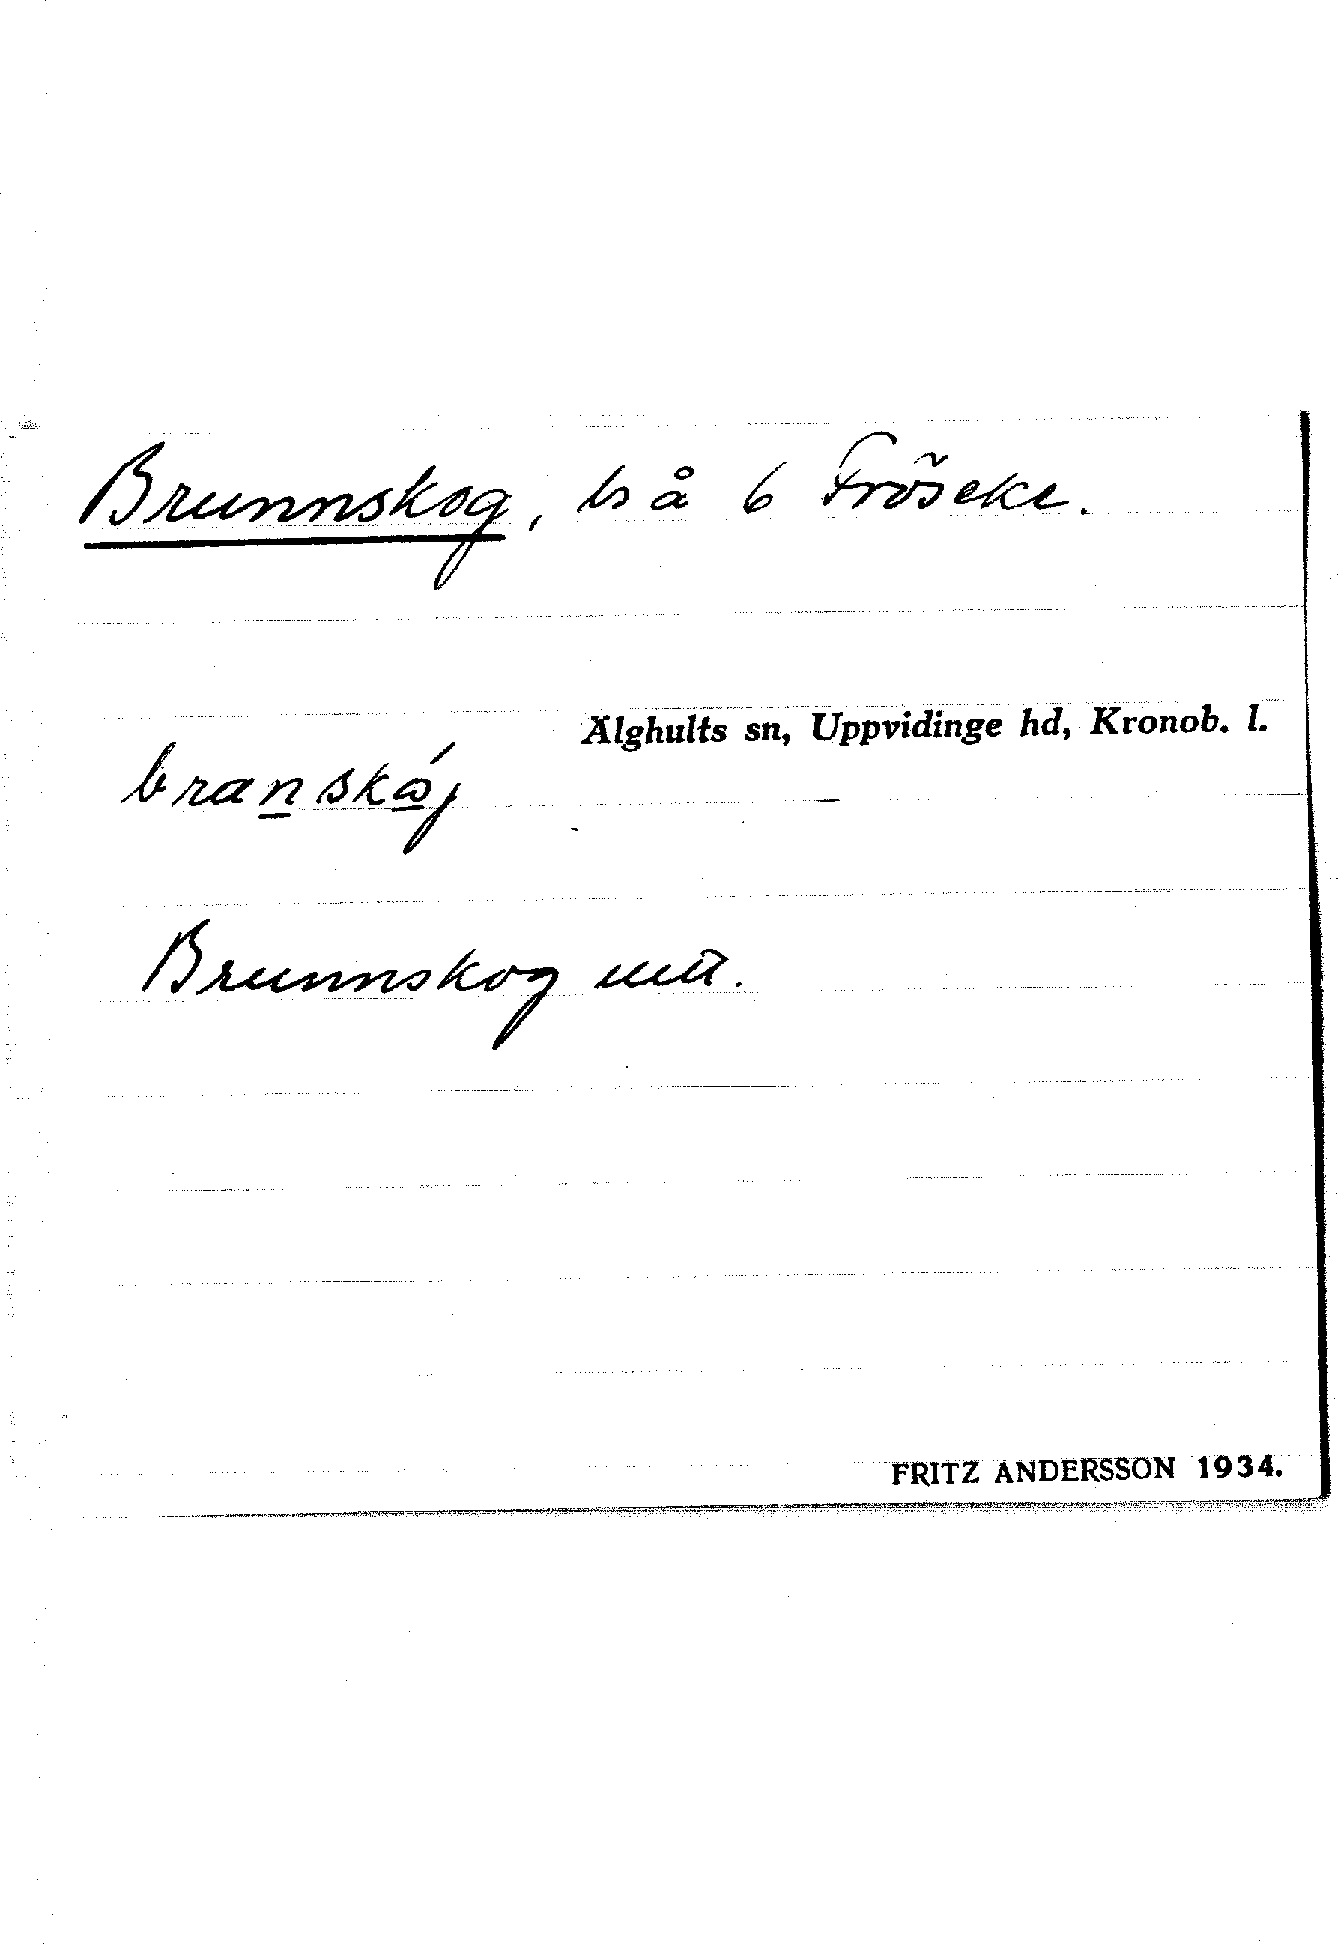 Brunnskog, ls å 6 Fröseke.
Älghults sn, Uppvidinge hd, Kronob. l.
Brunnskog
FRITZ ANDERSSON 1934.